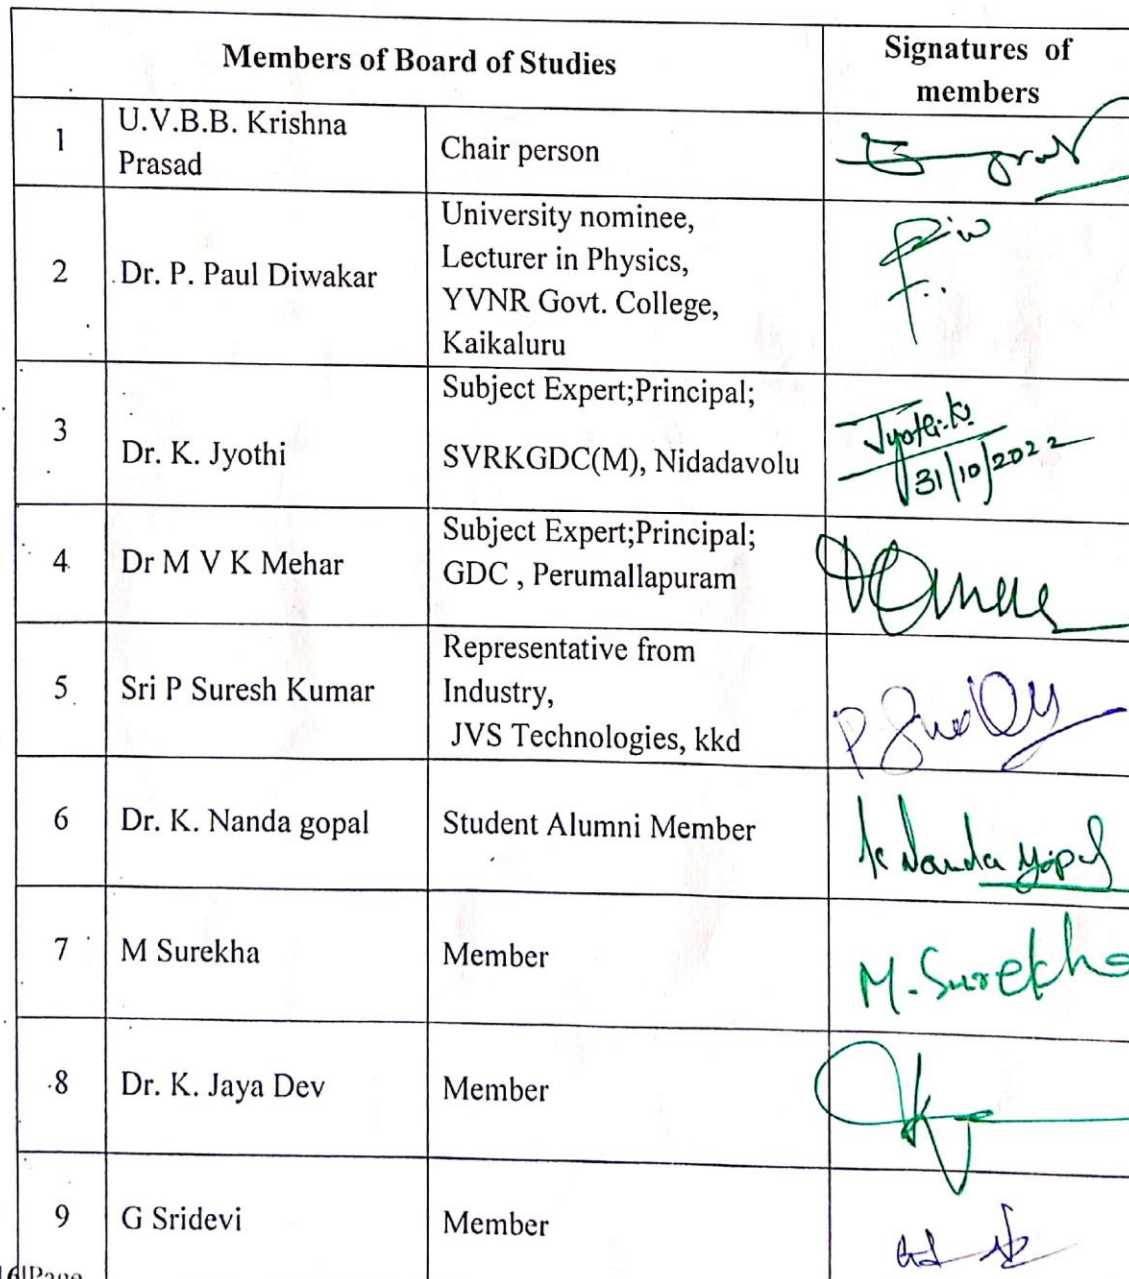 Members of Board of Studies
Signatures of
members
1
U.V.B.B. Krishna
Prasad
Chair person
2
Dr. P. Paul Diwakar
University nominee,
Lecturer in Physics,
YVNR Govt. College,
Kaikaluru
3
Dr. K. Jyothi
Subject Expert;Principal;
SVRKGDC(M), Nidadavolu
Jyothi.K
31/10/2022
4
Dr M V K Mehar
Subject Expert;Principal;
GDC , Perumallapuram
5
Sri P Suresh Kumar
Representative from
Industry,
JVS Technologies, kkd
6
Dr. K. Nanda gopal
Student Alumni Member
K Nanda gopal
7
M Surekha
Member
M. Surekha
8
Dr. K. Jaya Dev
Member
9
G Sridevi
Member
6|Page